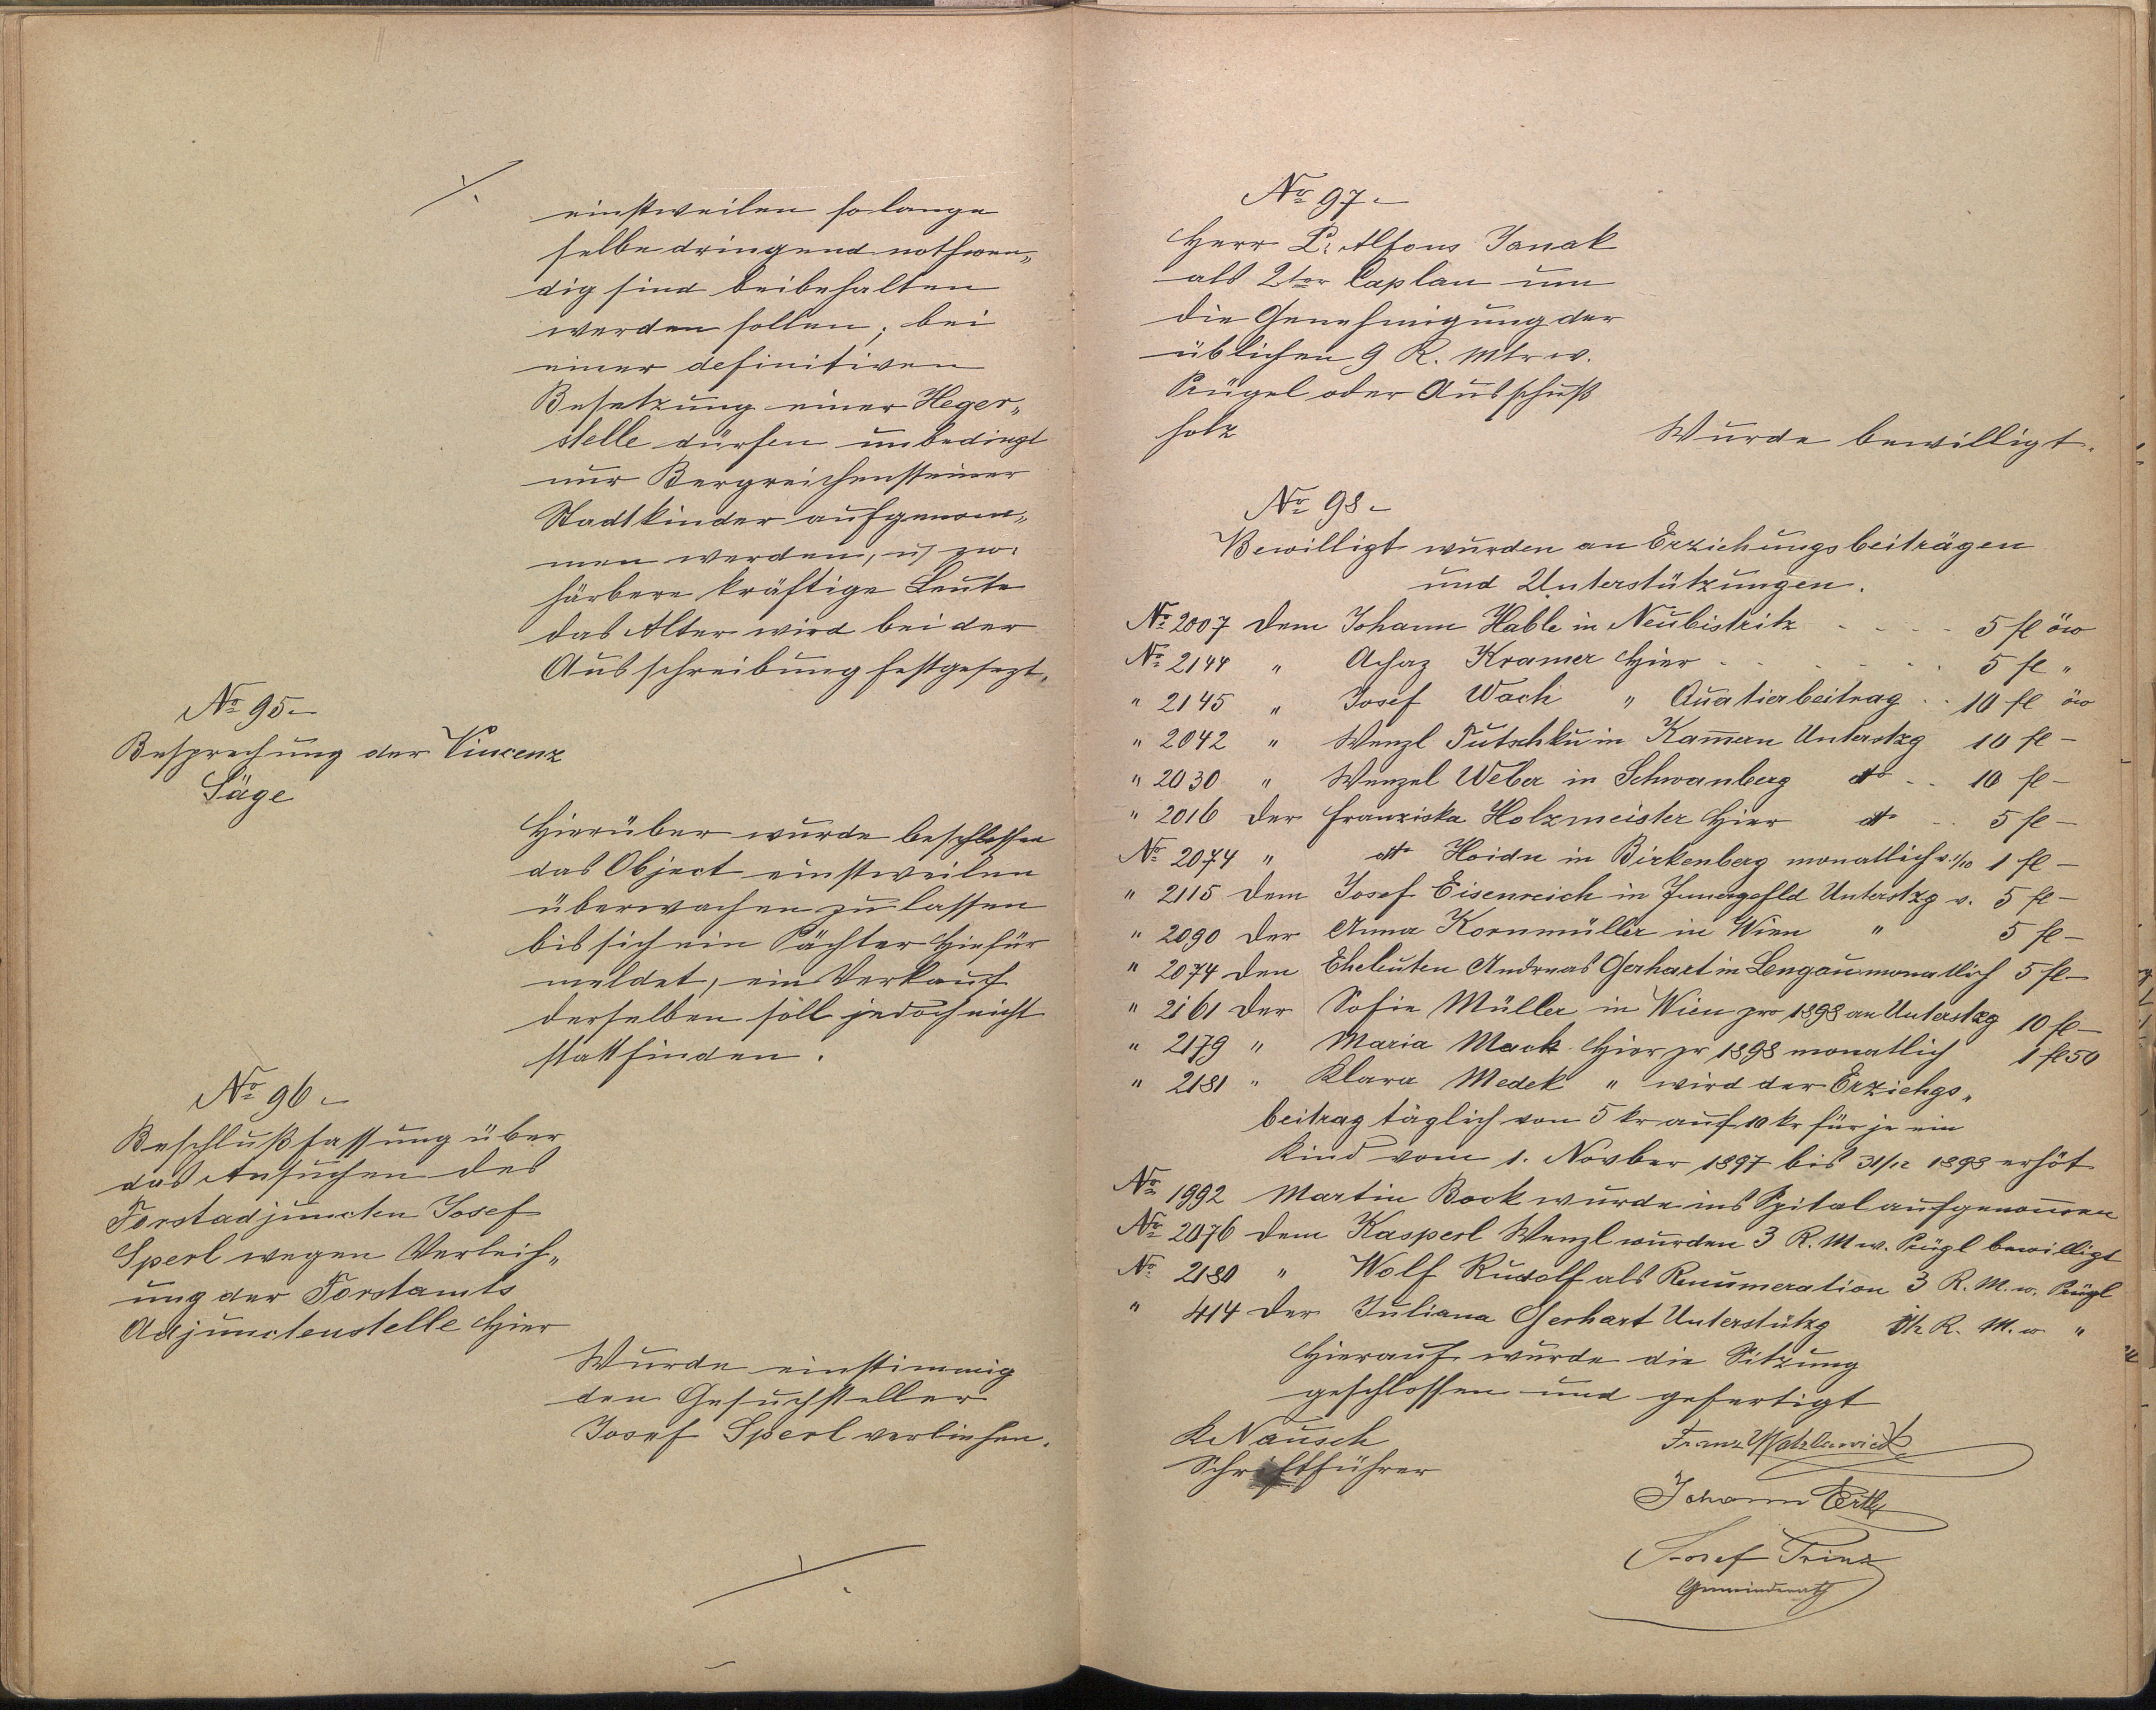 einstweilen so lange
selbe dringend nothwen„
dig sind beibehalten
werden sollen, bei
einer definitiven
Besetzung einer Heger„
stelle dürfen unbedingt
nur Bergreichensteiner
Stadtkinder aufgenom„
men werden, u. zw.
färbere kräftige Leute
das Alter wird bei der
Ausschreibung festgesezt.
No 95.
Besprechung der Vincenz
Säge
Hierüber wurde beschlossen
das Object einstweilen
überwachen zu lassen
bis sich ein Pächter hiefür
meldet, ein Verkauf
derselben soll jedoch nicht
stattfinden.
No 96.
Beschlußfassung über
das Ansuchen des
Forstadjuncten Josef
Sperl wegen Verleih„
ung der Forstamts
Adjunctenstelle hier
Wurde einstimmig
den Gesuchsteller
Josef Sperl verliehen.
No 97.
Herr P. Alfons Janak
als 2ter Caplan um
die Genehmigung der
üblichen 9 R. Mtr w.
Prügel oder Ausschuß
holz
Wurde bewilligt.
No 98.
Bewilligt wurden an Erziehungsbeiträgen
und Unterstützungen.
No 2007 dem Johann Hable in Neubistritz - - - - 5 fl öw
No 2144 " Achaz Kramer hier . . . . . . 5 fl "
" 2145 " Josef Wach " Quatierbeitrag . . 10 fl öw
" 2042 " Wenzl Tutschku in Kam̅ern Unterstzg 10 fl -
" 2030 " Wenzel Weber in Schwanberg dto . . 10 fl -
" 2016 der Franziska Holzmeister hier dto . . 5 fl -
No 2074 " dto Hoidn in Birkenberg monatlich v. 1/10 1 fl -
" 2115 dem Josef Eisenreich in Unterstzg v. 5 fl -
" 2090 der Anna Kornmüller in Wien " 5 fl -
" 2074 den Eheleuten Andreas Gerhart in Lengau monatlich 5 fl -
" 2161 der Sofie Müller in Wien pro 1898 an Unterstzg 10 fl -
" 2179 " Maria Mack hier pr 1898 monatlich 1 fl 50
" 2181 " Klara Medek " wird der Erziehgs„
beitrag täglich von 5 kr auf 10 kr für je ein
Kind vom 1. Novber 1897 bis 31/12 1898 erhöt
No 1992 Martin Bock wurde ins Spital aufgenom̅en
No 2076 dem Kasperl Wenzl wurden 3 R. M w. Prügl bewilligt
No 2180 " Wolf Rudolf als Renumeration 3 R. M. w. Prügl
" 414 der Juliana Gerhart Unterstützg R. M. w "
Hierauf wurde die Sitzung
geschlossen und gefertigt
K Nausch
Schriftführer
Franz Watzlawick
Johann Ertl
Josef Prinz
Gemeinderath